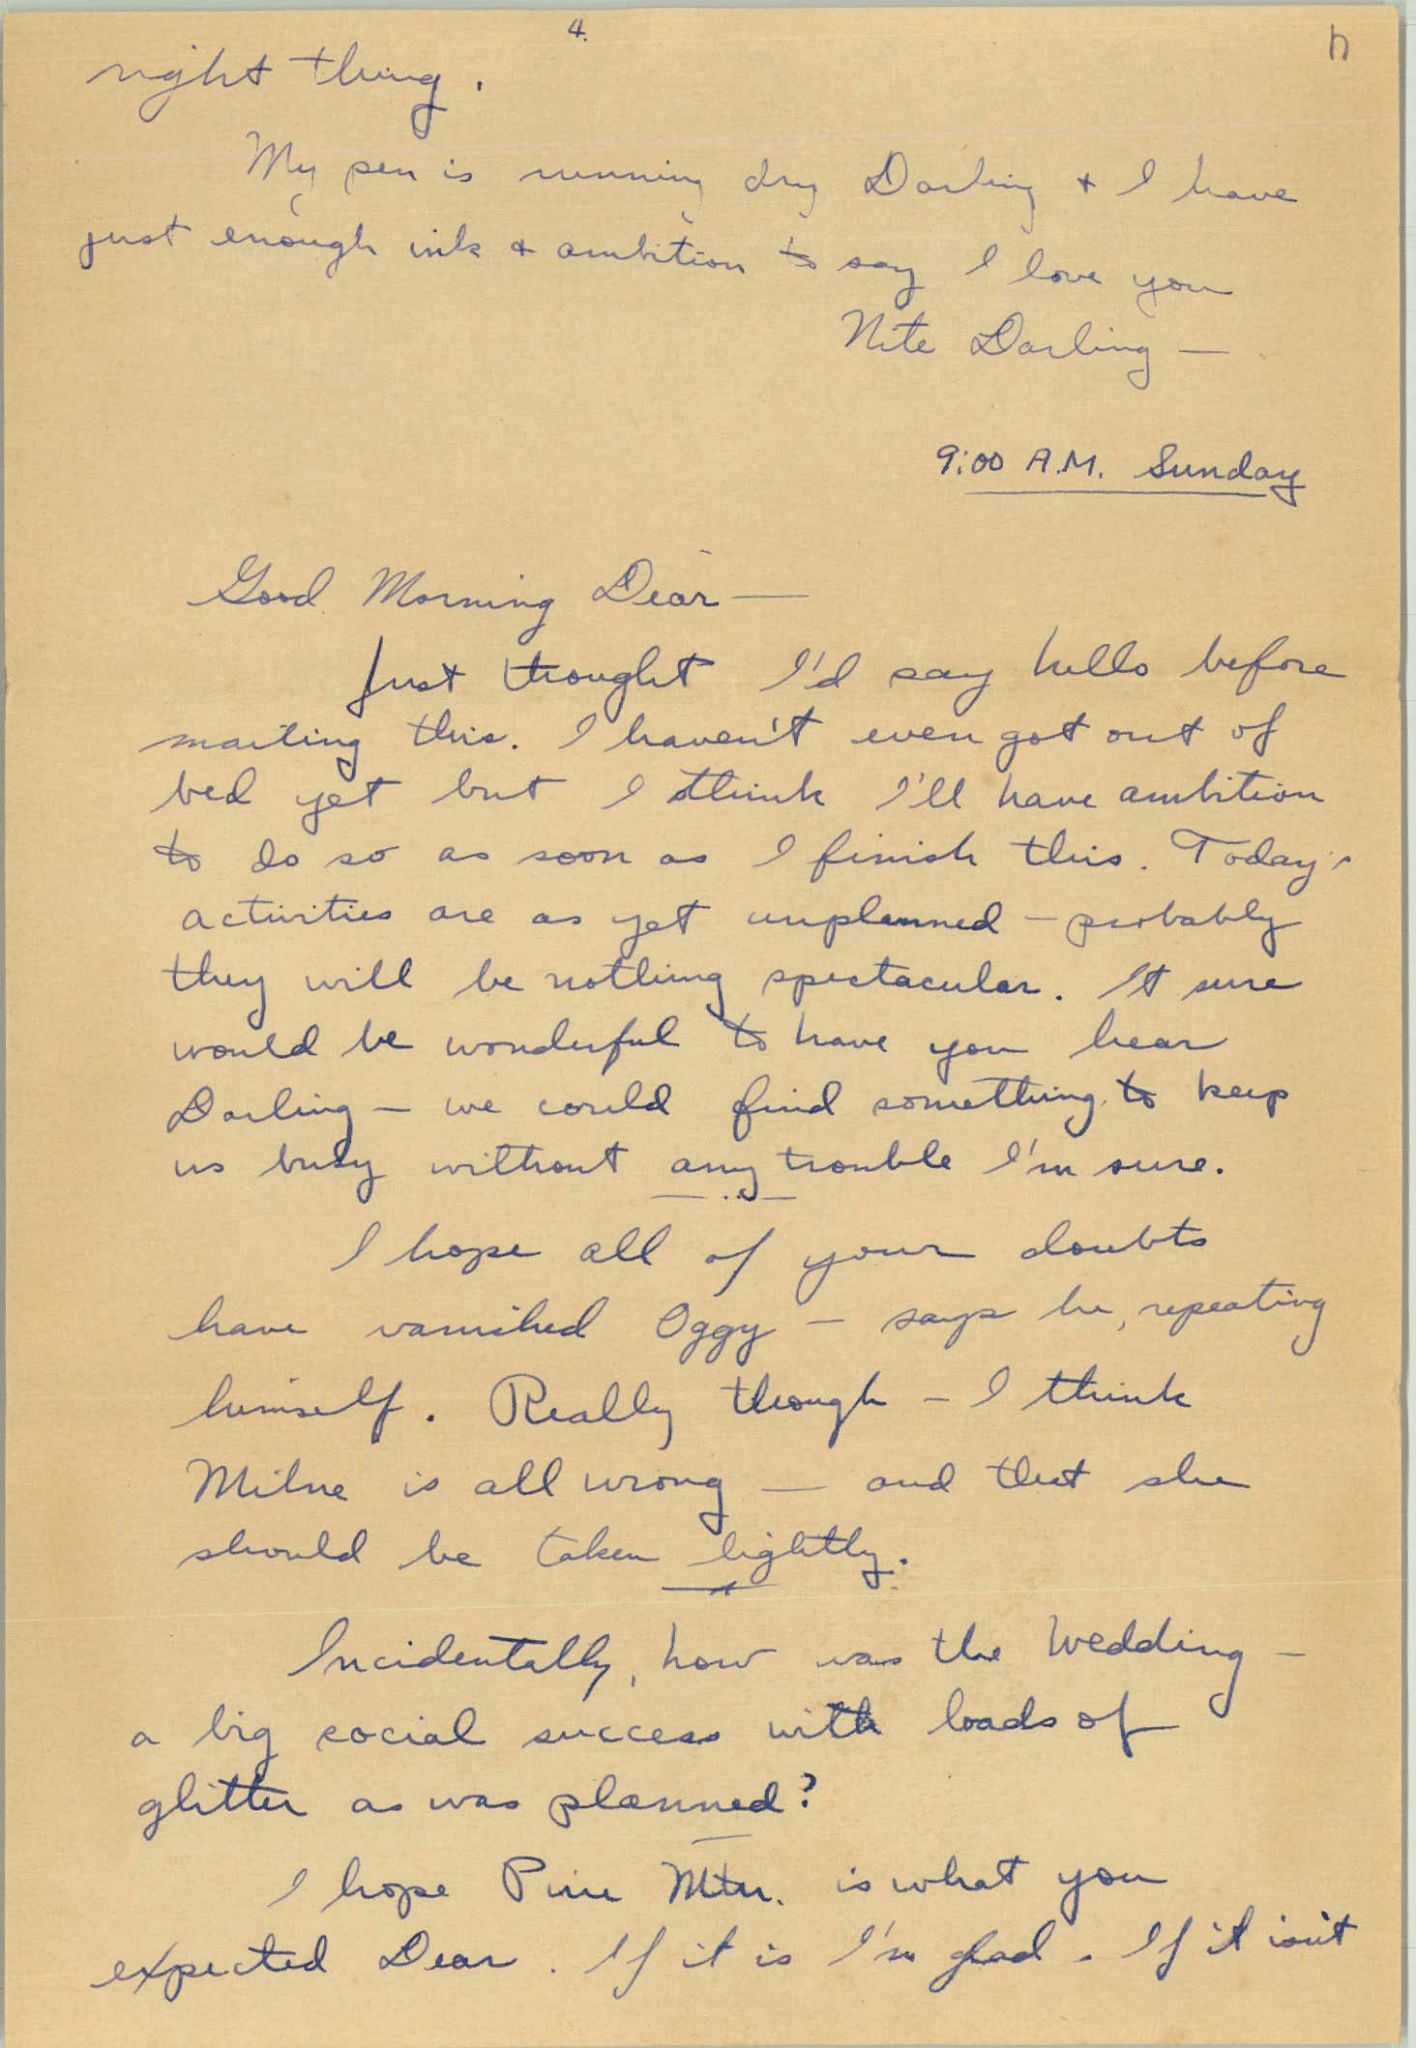 4.
right thing.
My pen is running dry Darling + I have
just enough ink + ambition to say I love you
Nite Darling —
9:00 A.M. Sunday
Good Morning Dear —
Just thought I'd say hello before
mailing this. I haven't even got out of
bed yet but I think I'll have ambition
to do so as soon as I finish this. Today's
activities are as yet unplanned – probably
they will be nothing spectacular. It sure
would be wonderful to have you hear
Darling – we could find something to keep
us busy without any trouble I'm sure.
I hope all of your doubts
have vanished Oggy – says he, repeating
himself. Really though – I think
Milne is all wrong — and that she
should be taken lightly.
Incidentally, how was the Wedding –
a big social success with loads of
glitter as was planned?
I hope Pine Mtn. is what you
expected Dear. If it is I'm glad. If it isn't